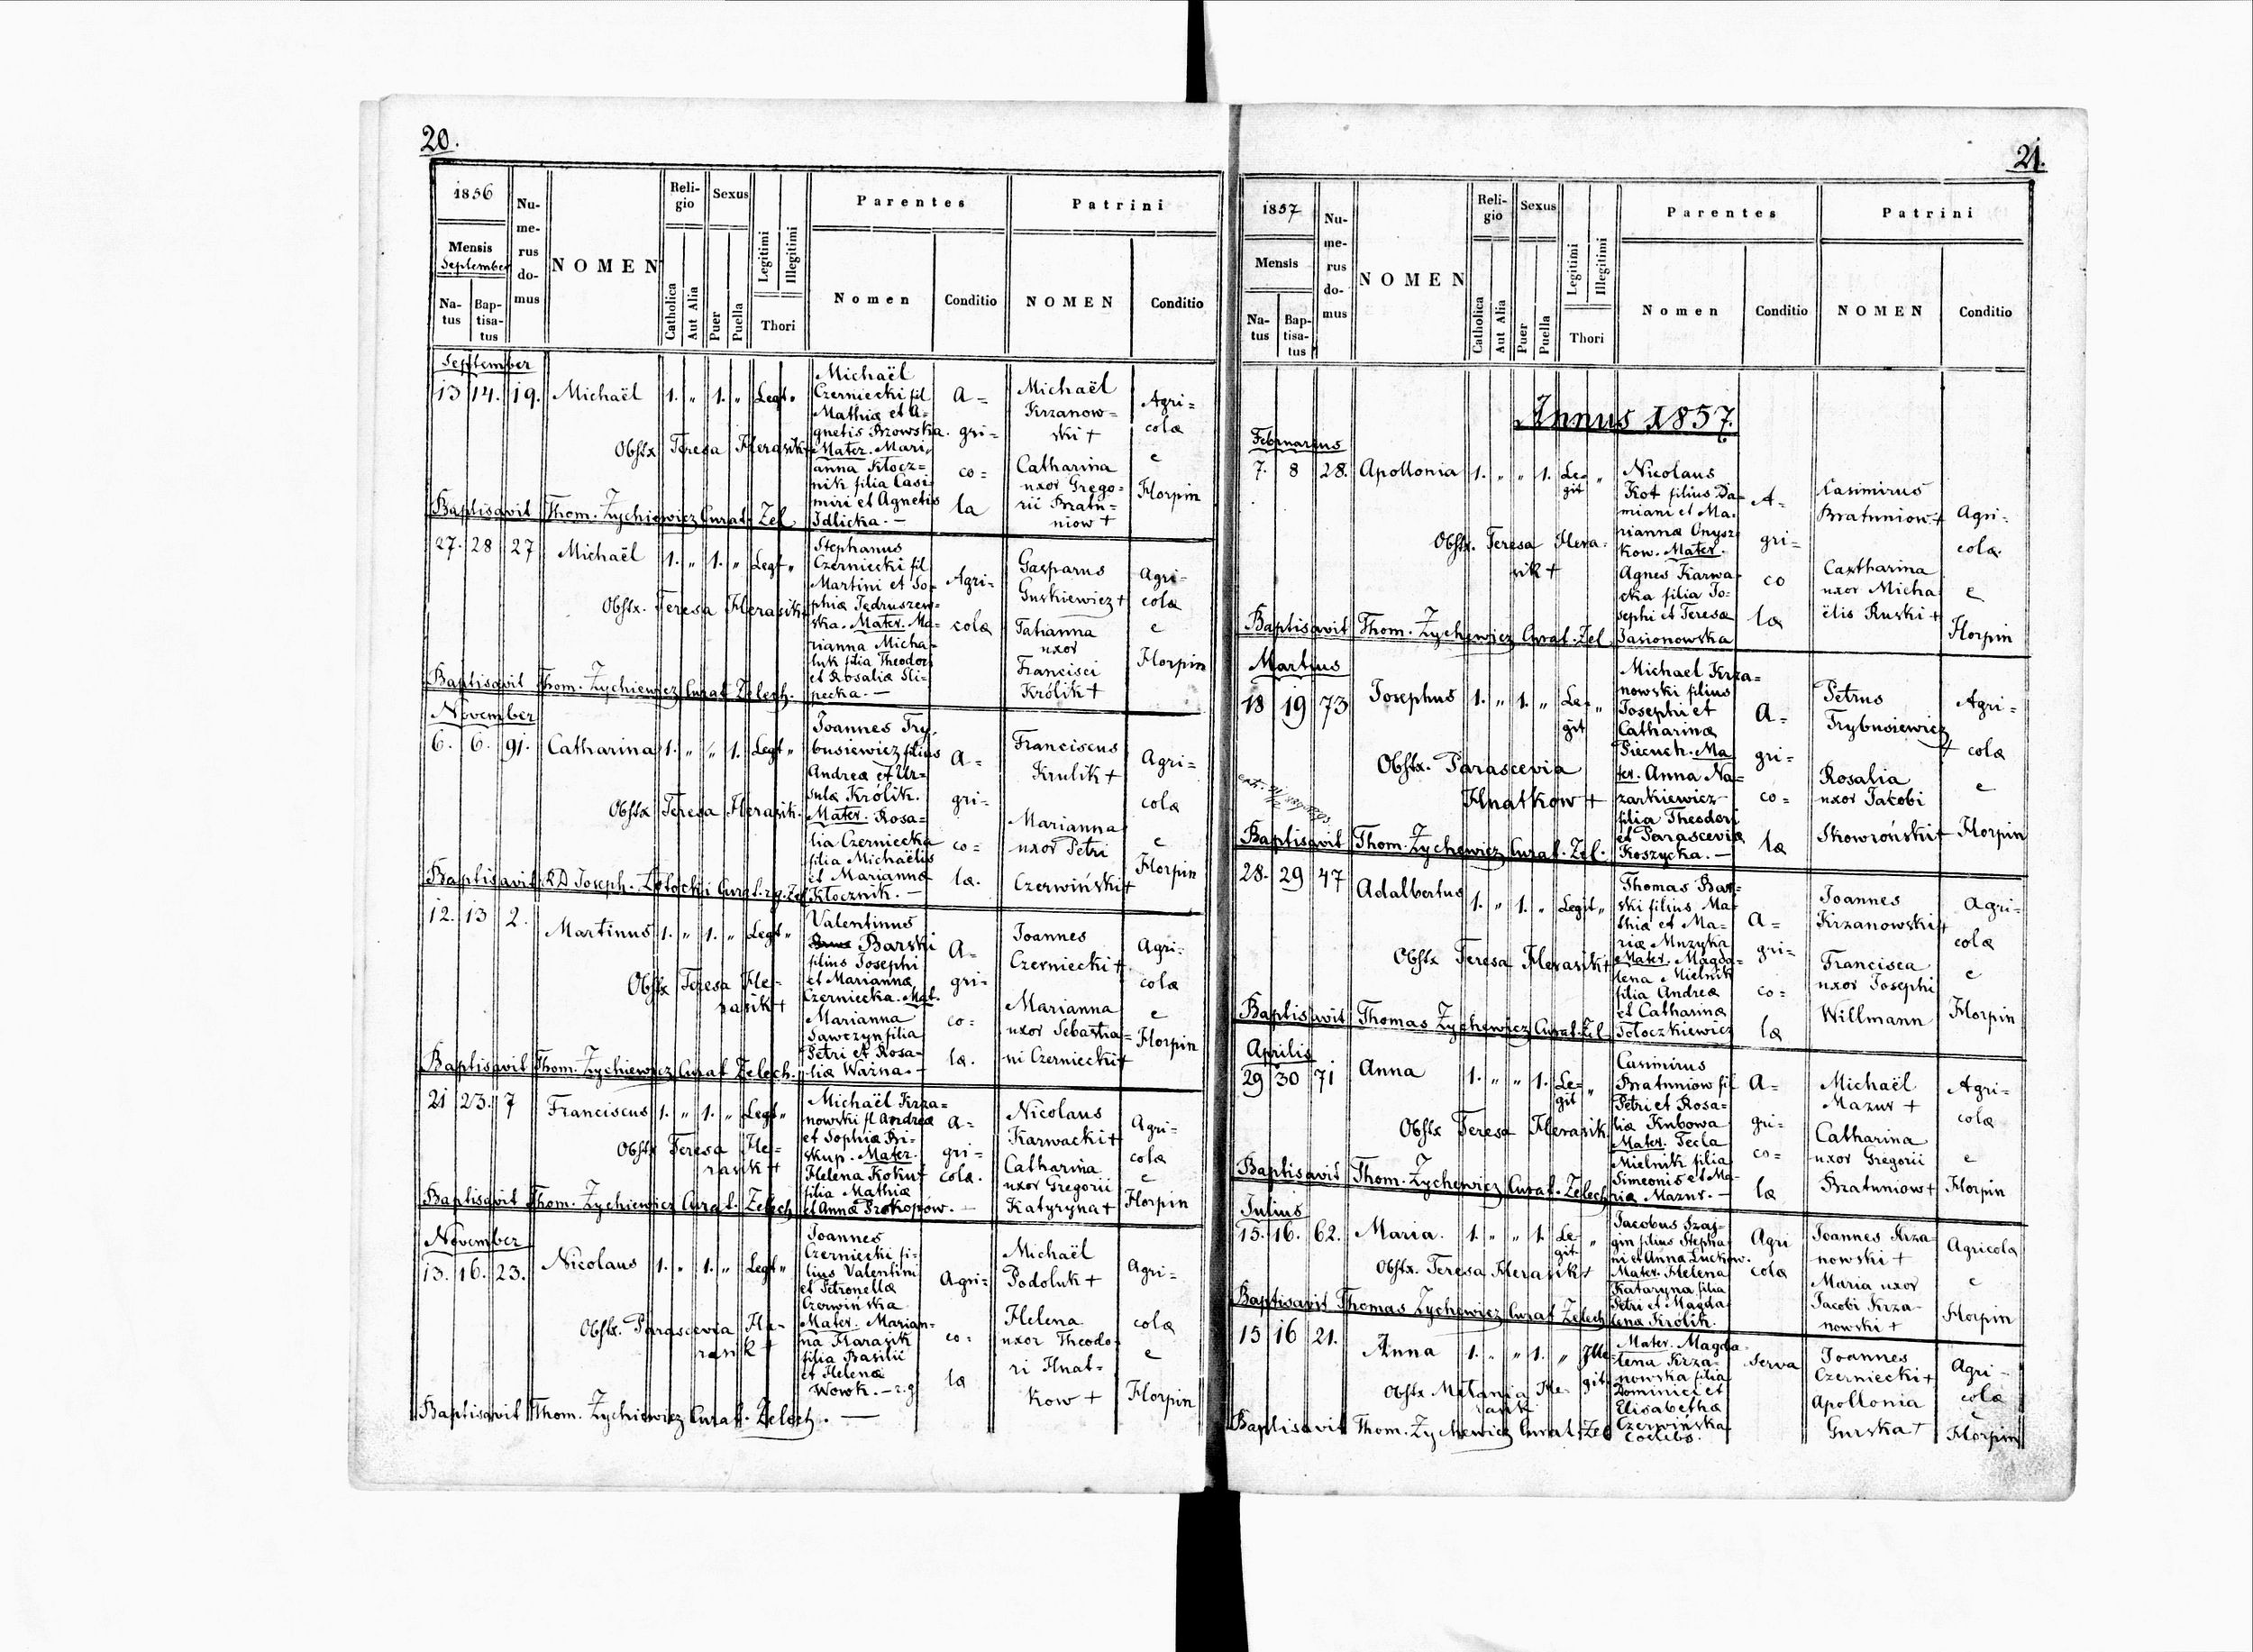 20.
1856
Mensis
September
Na-
tus
Bap-
tisa-
tus
Nu-
me-
rus
do-
mus
NOMEN
Reli-
gio
Catholica
Aut Alia
Sexus
Puer
Puella
Legitimi
Illegitimi
Thori
Parentes
Nomen
Conditio
Patrini
NOMEN
Conditio
September
13 14. 19. Michaël 1. „ 1. „ Legt „
Obstx Teresa Harasik
Michaël
Czerniecki fil
Mathiæ et A=
gnetis Brzowska.
Mater. Mari,
anna Kłocz=
nik filia Casi
miri et Agnetis
Idlicka. —
A=
gri=
co=
la
Michaël
Krzanow=
ski +
Catharina
uxor Grego=
rii Bratu=
niow +
Agri=
colæ
e
Horpin
Baptisavit Thom. Zychiewicz Curat. Zel.
27. 28 27 Michaël 1. „ 1. „ Legt „
Obstx. Teresa Harasik+
Stephanus
Czerniecki fil
Martini et So-
phiæ Jędruszew-
ska. Mater. Ma-
rianna Micha-
luk filia Theodori
et Rosaliæ Sli-
pecka. —
Agri=
colæ
Gasparus
Guskiewicz+
Tatianna
uxor
Francisci
Królik +
Agri-
colæ
e
Horpin
Baptisavit Thom. Zychiewicz Curat Zelech.
November
6. 6. 91. Catharina 1. „ „ 1. Legt „
Obstx Teresa Harasik.
Joannes Try,
busiewicz filius
Andreæ et Ur=
sulæ Królik.
Mater. Rosa=
lia Czerniecka
filia Michaëlis
et Mariannæ
Kłocznik. —
A=
gri=
co=
læ.
Franciscus
Krulik +
Marianna
uxor Petri
Czerwiński+
Agri=
colæ
e
Horpin
Baptisavit RD Joseph. Curat. r.g. Zel
12. 13 2. Martinus 1. „ 1. „ Legt „
Obstx Teresa Ha-
rasik +
Valentinus
Barski
filius Josephi
et Mariannæ
Czerniecka. Mat.
Marianna
Sawczyn filia
Petri et Rosa-
liæ Warna. —
A=
gri-
co=
læ.
Joannes
Czerniecki +
Marianna
uxor Sebastia=
ni Czerniecki+
Agri=
colæ
e
Horpin
Baptisavit Thom. Zychiewicz Curat Zelech.
21 23. 7 Franciscus 1. „ 1. „ Legt „
Obstx Teresa Ha=
rasik +
Michaël Krza=
nowski fl Andreæ
et Sophiæ Bi-
skup. Mater.
Helena Kokut
filia Mathiæ
et Annæ Prokopów. —
A=
gri=
colæ.
Nicolaus
Karwacki +
Catharina
uxor Gregorii
Katyryna +
Agri=
colæ
e
Horpin
Baptisavit Thom. Zychiewicz Curat. Zelech
November
13. 16. 23. Nicolaus 1. „ 1. „ Legt „
Obstx. Parascevia Ha-
rasik +
Joannes
Czerniecki fi-
lius Valentini
et Petronellæ
Czerwinska
Mater. Marian=
na Harasik
filia Basilii
et Helenæ
Wowk. — r.g
Agri=
co=
læ
Michaël
Podoluk +
Helena
uxor Theodo-
ri Hnat-
kow +
Agri=
colæ
e
Horpin
Baptisavit Thom. Zychiewicz Curat. Zelech. —
21.
1857
Mensis
Na-
tus
Bap-
tisa-
tus
Nu-
me-
rus
do-
mus
NOMEN
Reli-
gio
Catholica
Aut Alia
Sexus
Puer
Puella
Legitimi
Illegitimi
Thori
Parentes
Nomen
Conditio
Patrini
NOMEN
Conditio
Annus 1857.
Februarius
7. 8 28. Apollonia 1. „ „ 1. Le-
git „
Obstx. Teresa Hara-
sik +
Nicolaus
Kot filius Da-
miani et Ma-
riannæ Onysz
kow. Mater.
Agnes Karwa-
cka filia Jo-
sephi et Teresæ
Jasionowska
A-
gri=
co
læ
Casimirus
Bratuniow +
Cartharina
uxor Micha
ëlis Ruski +
Agri-
colæ
e
Horpin
Baptisavit Thom. Zychewicz Curat. Zel
Martius
18 19 73 Josephus 1. „ 1. „ Le-
git „
Obstx. Parascevia
Hnatkow +
Michael Krza=
nowski filius
Josephi et
Catharinæ
Piecuch. Ma
ter. Anna Na=
zarkiewicz
filia Theodori
et Parasceviæ
Koszycka. —
A=
gri=
co=
læ
Petrus
Trybusiewicz
+
Rosalia
uxor Jacobi
Skowroński+
Agri=
colæ
e
Horpin
Baptisavit Thom. Zychewicz Curat. Zel.
28. 29 47 Adalbertus 1. „ 1. „ Legit „
Obstx Teresa Harasik+
Thomas Bar=
ski filius Ma-
thiæ et Ma-
riæ Muzyka
Mater. Magda-
lena Mielnik
filia Andreæ
et Catharinæ
Tołoczkiewicz
A=
gri=
co=
læ
Joannes
Krzanowski+
Francisca
uxor Josephi
Willmann
Agri=
colæ
e
Horpin
Baptisavit Thomas Zychewicz Curat. Zel
Aprilis
29 30 71 Anna 1. „ „ 1. Le=
git „
Obstx Teresa Harasik.
Casimirus
Bratuniow fil
Petri et Rosa=
liæ Kubowa
Mater. Tecla
Mielnik filia
Simeonis et Ma-
riæ Mazur. —
A=
gri=
co=
læ
Michaël
Mazur +
Catharina
uxor Gregorii
Bratuniow +
Agri=
colæ
e
Horpin
Baptisavit Thom. Zychewicz Curat. Zelech
Julius
15. 16. 62. Maria. 1. „ „ 1. Le-
git „
Obstx. Teresa Harasik+
Jacobus Szaj-
gin filius Stepha-
ni et Anna Luckow.
Mater. Helena
Kataryna filia
Petri et Magda
lenæ Królik.
Agri
colæ
Joannes Krza-
nowski +
Maria uxor
Jacobi Krza-
nowski +
Agricola
e
Horpin
Baptisavit Thomas Zychewicz Curat Zelech
15 16 21. Anna 1. „ „ 1. „ Ille-
git
Obstx Melania Ha-
rasik
Mater. Magda-
lena Krza-
nowska filia
Dominici et
Elisabethæ
Czerwińska
Coelibs.
Serva
Joannes
Czerniecki +
Apollonia
Gurska +
Agri-
colæ
e
Horpin
Baptisavit Thom. Zychewicz Curat. Zel